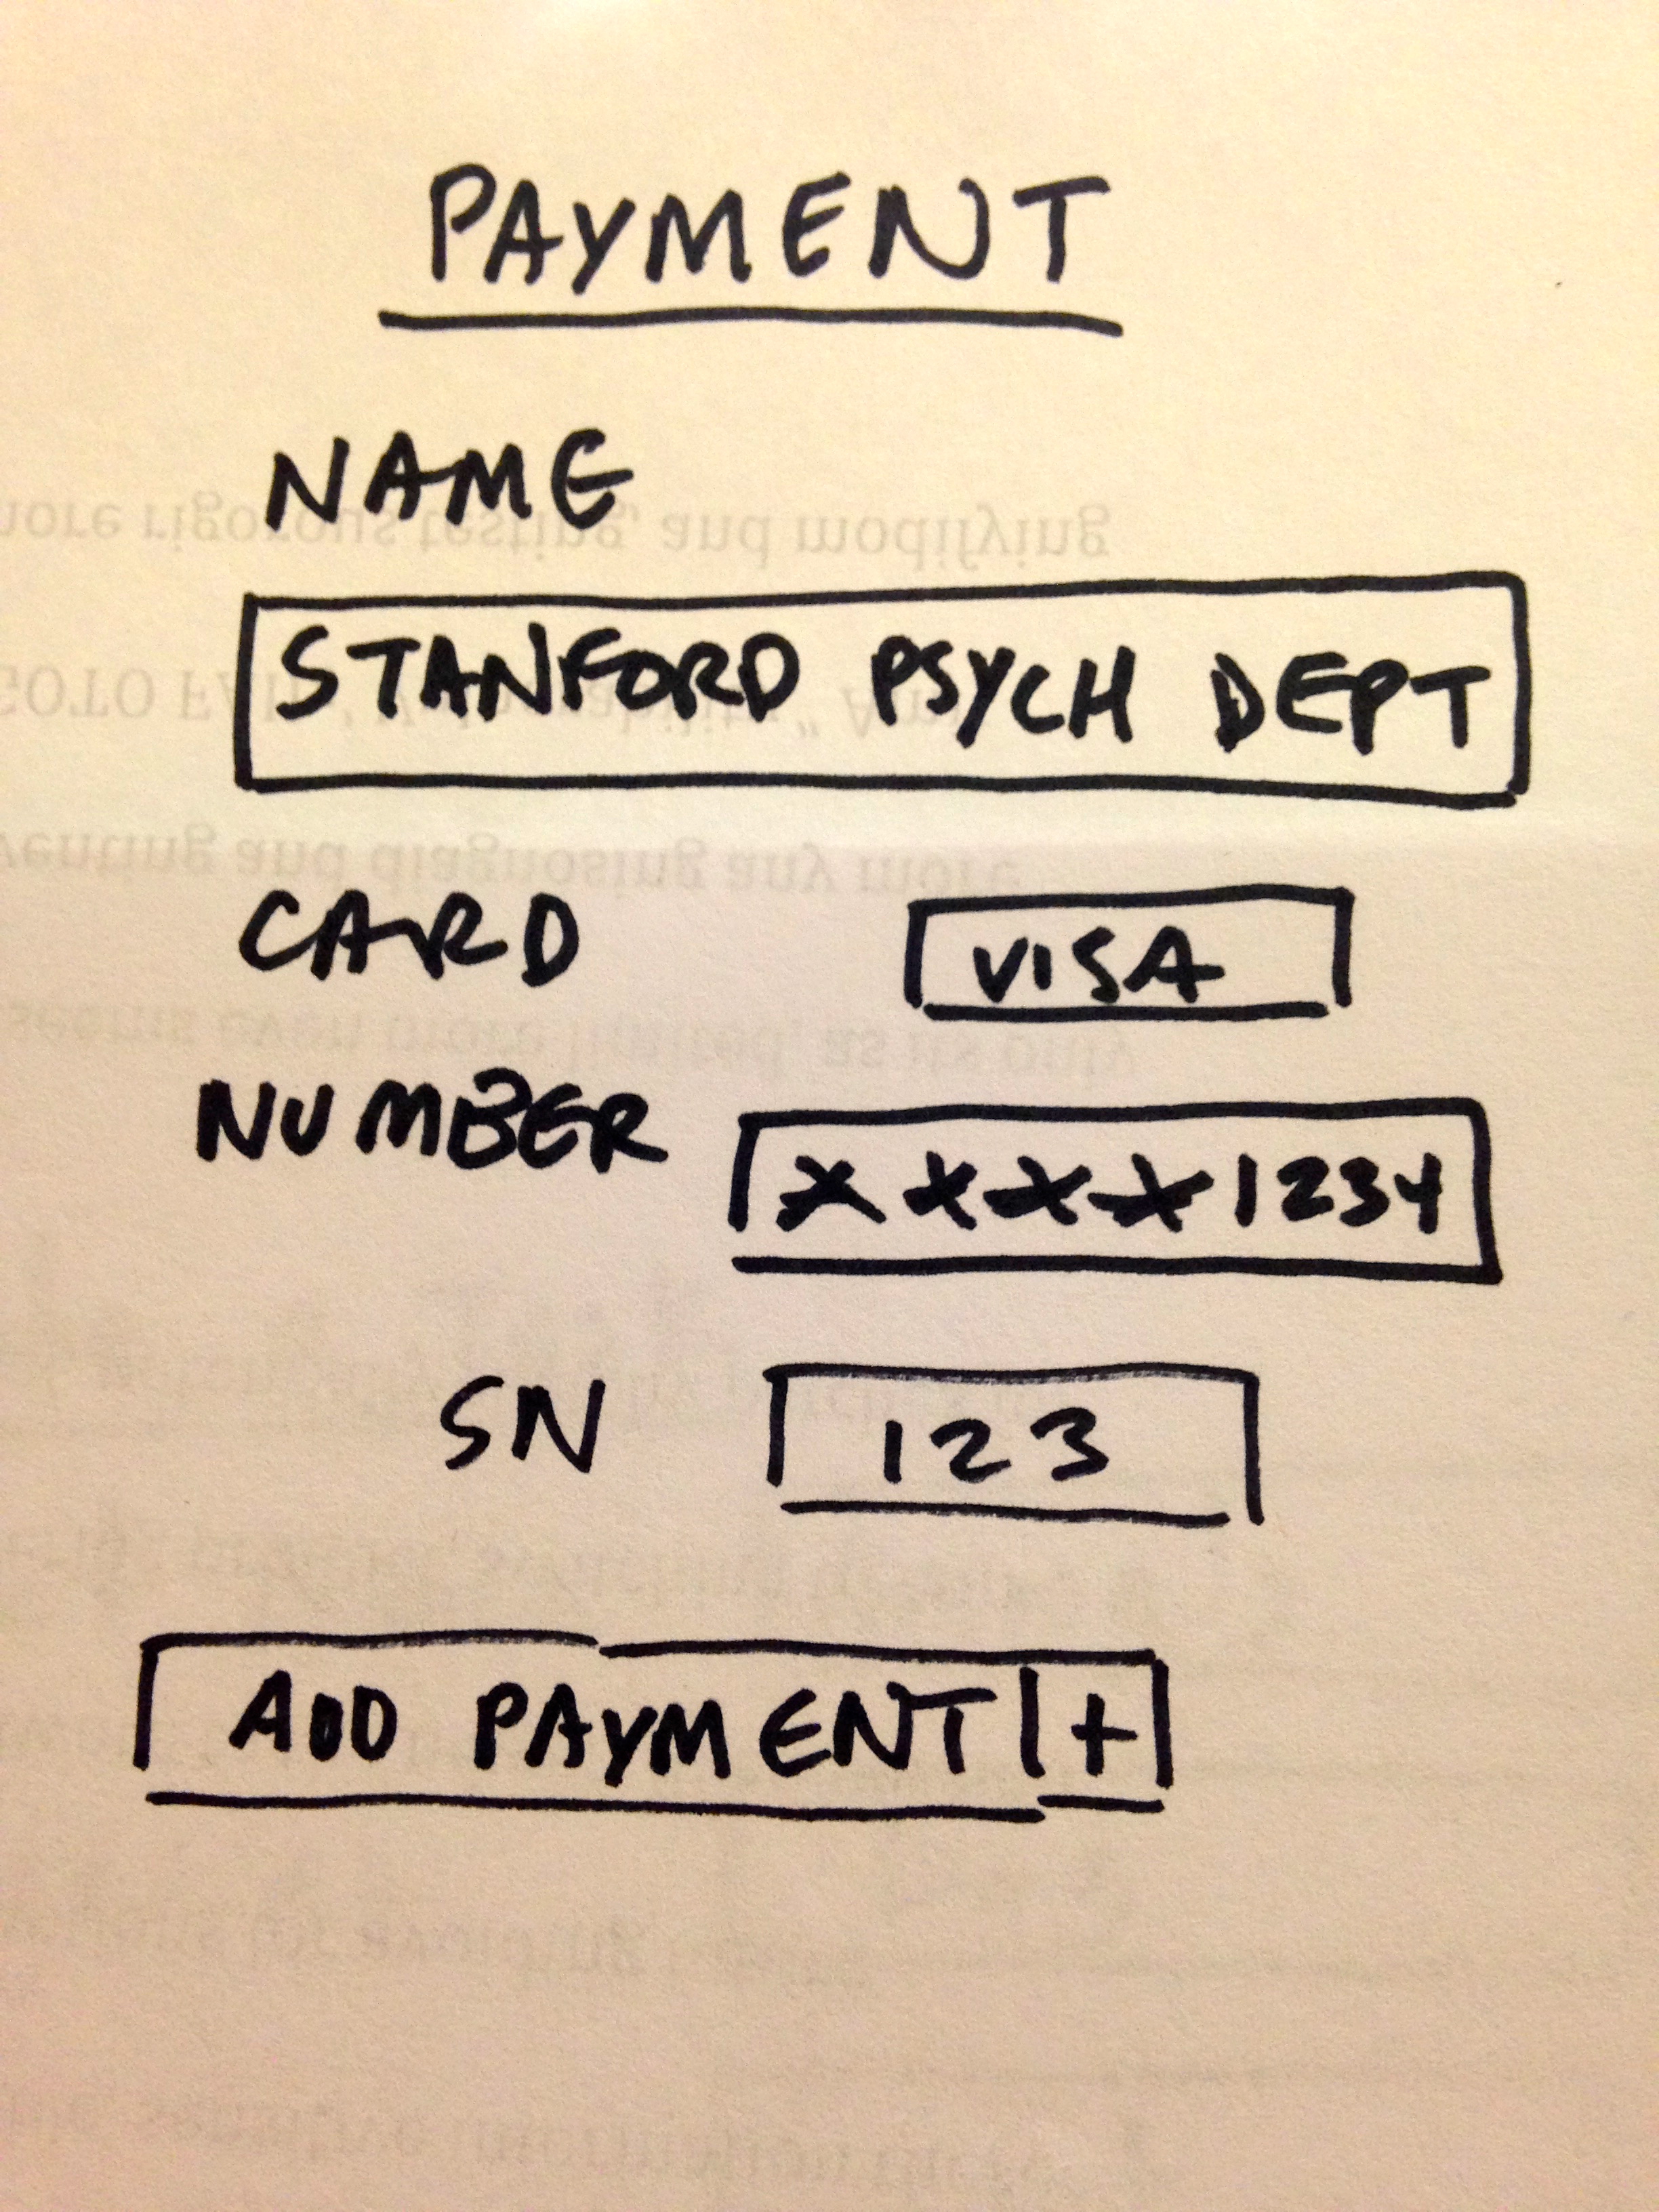 PAYMENT
NAME
STANFORD PSYCH DEPT
CARD VISA
NUMBER XXXX1234
SN 123
ADD PAYMENT +